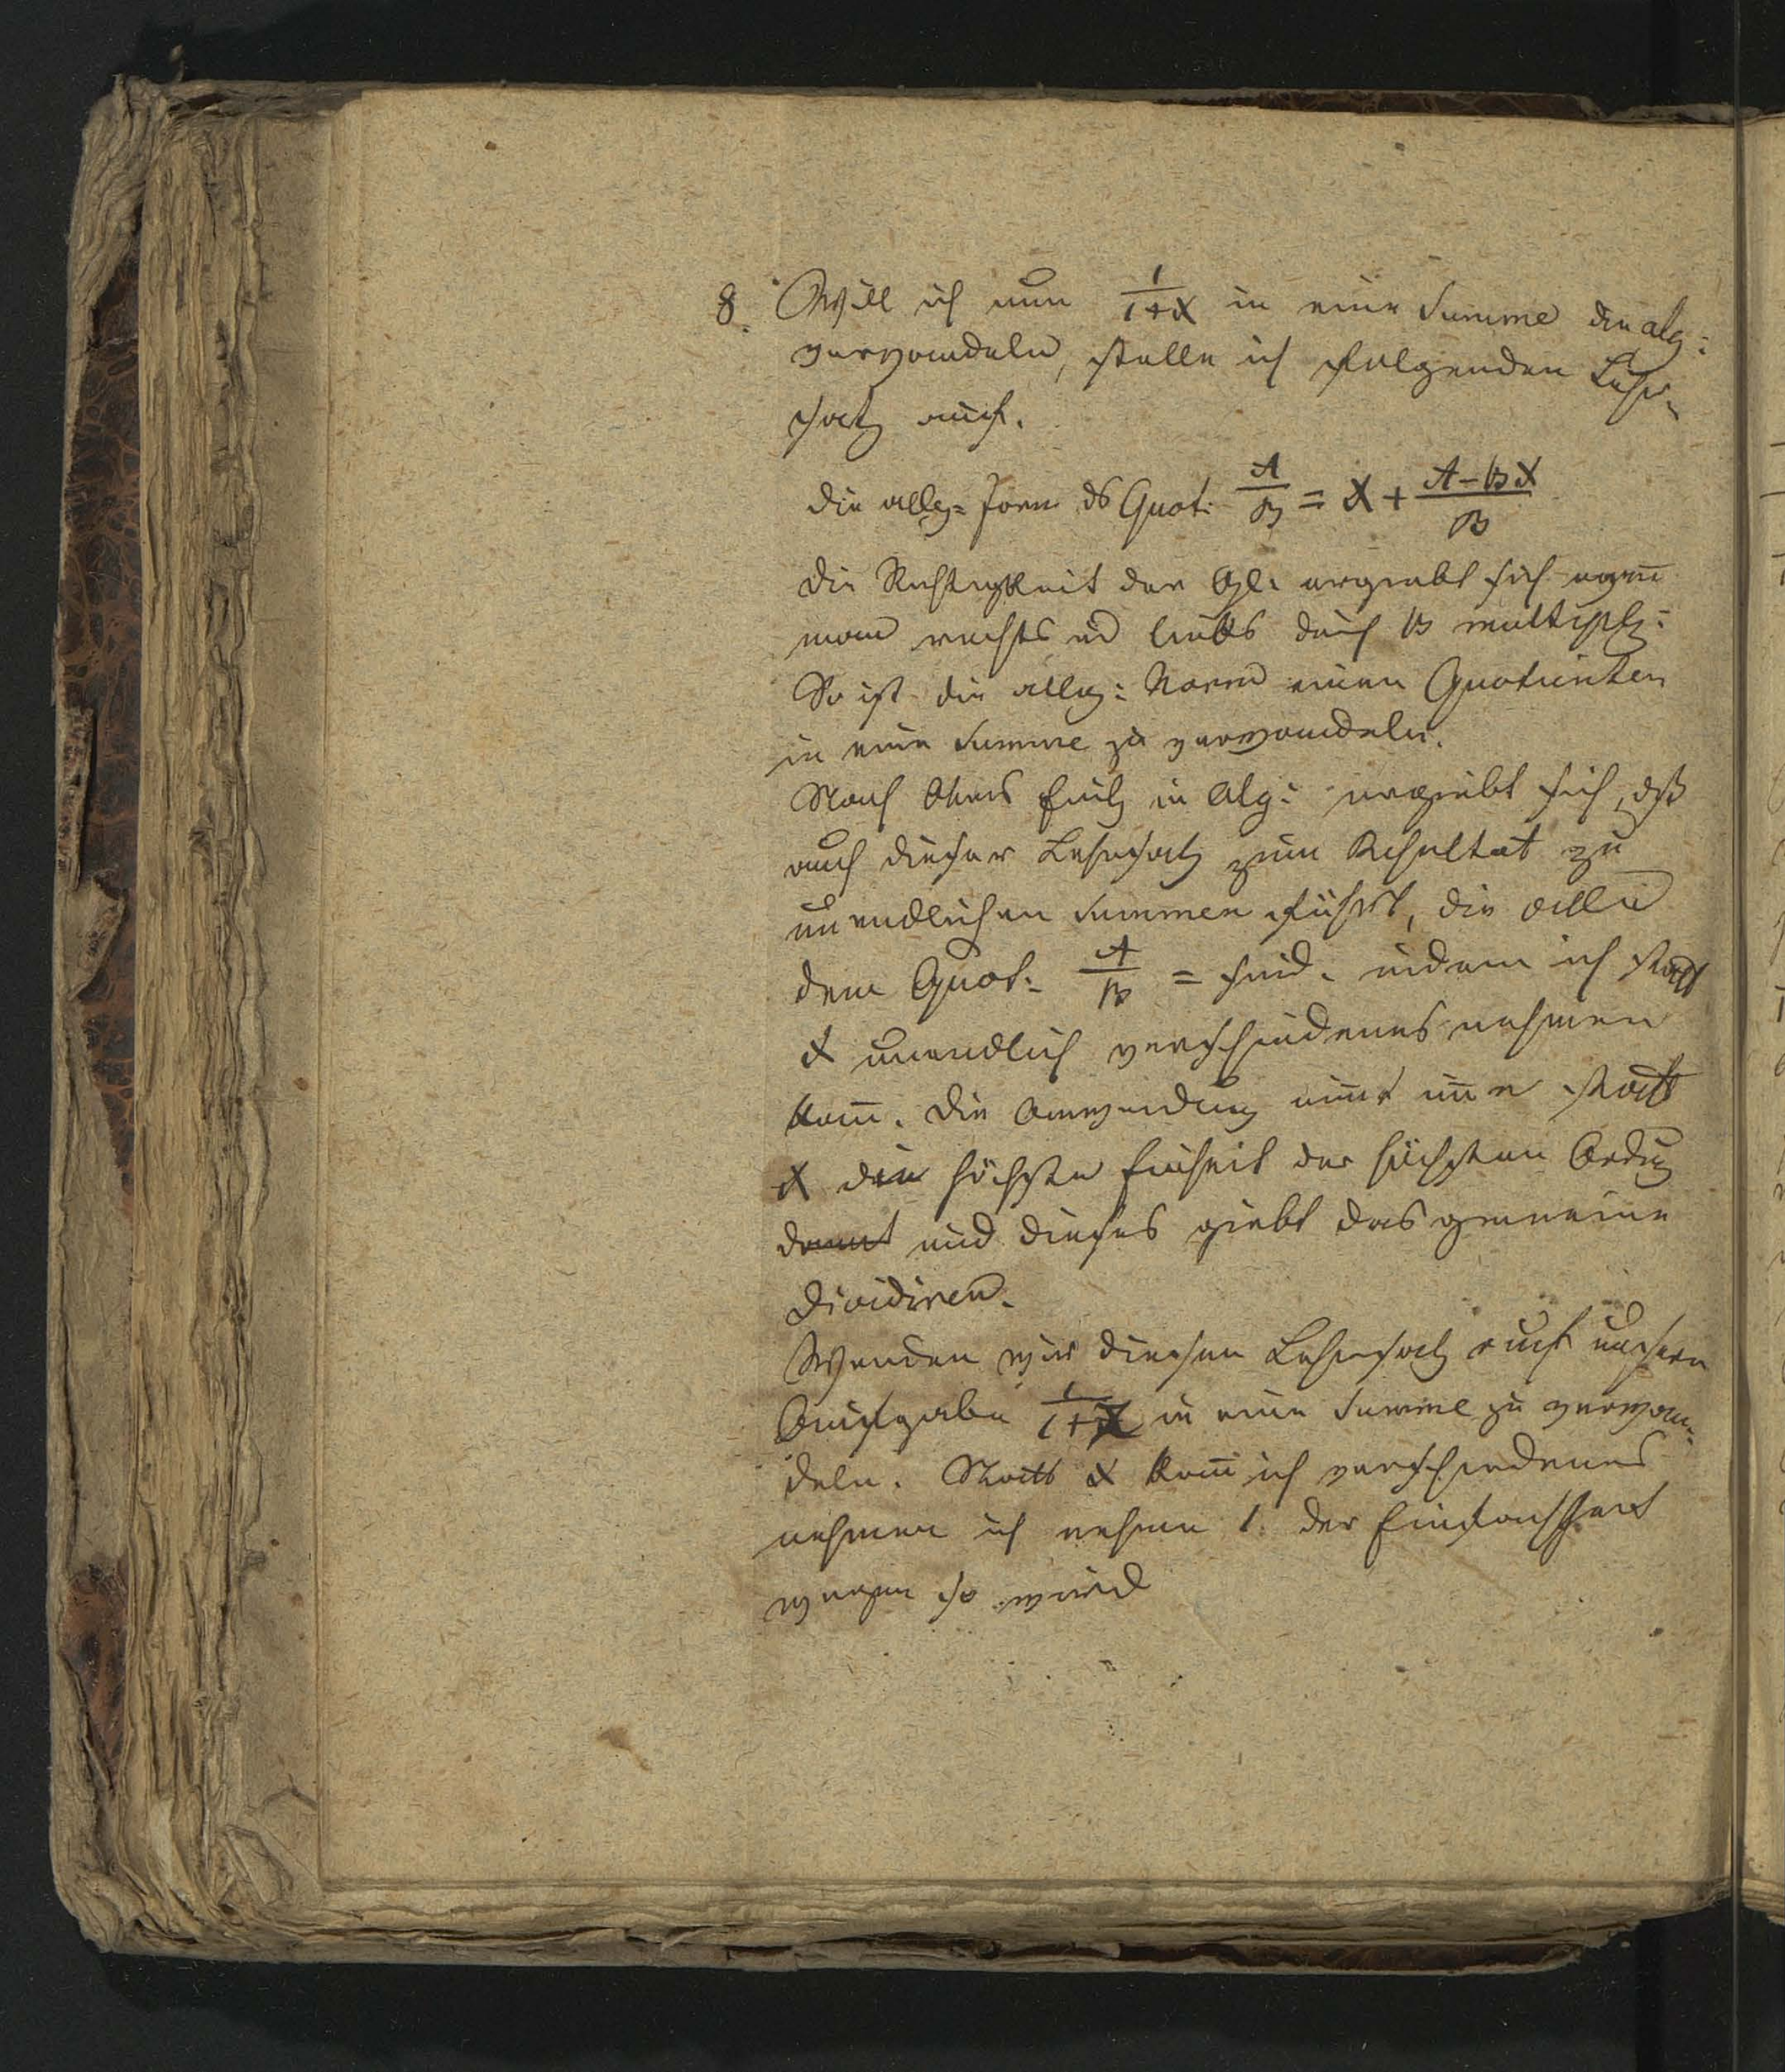 8. Will ich nun 1/1+X in eine Summe der alg:
verwandeln, stelle ich folgenden Lehr-
satz auf.
die allg: Form ds Quot: A/B = X + A-BX/B
die Richtigkeit der Gl: ergiebt sich wen̅
man rechts ud links durch B multipl:
So ist die allg: Norm einen Quotienten
in eine Summe zu verwandeln.
Nach in Alg: ergiebt sich, dß
auch dieser Lehrsatz zum Resultat zu
unendlichen Summen führt, die alle
dem Quot: A/B = sind. indem ich statt
X unendlich verschiedenes nehmen
kan̅. Die Anwendung nim̅t statt
X die höchste Einheit der höchsten Ordng
und dieses giebt das gemeine
Dividiren.
Wenden wir diesen Lehrsatz auf unsere
Aufgabe 1/1+X in eine Summe zu verwan-
deln. Statt X kan̅ ich verschiedenes
nehmen ich nehme 1. der Einfachheit
wegen so wird